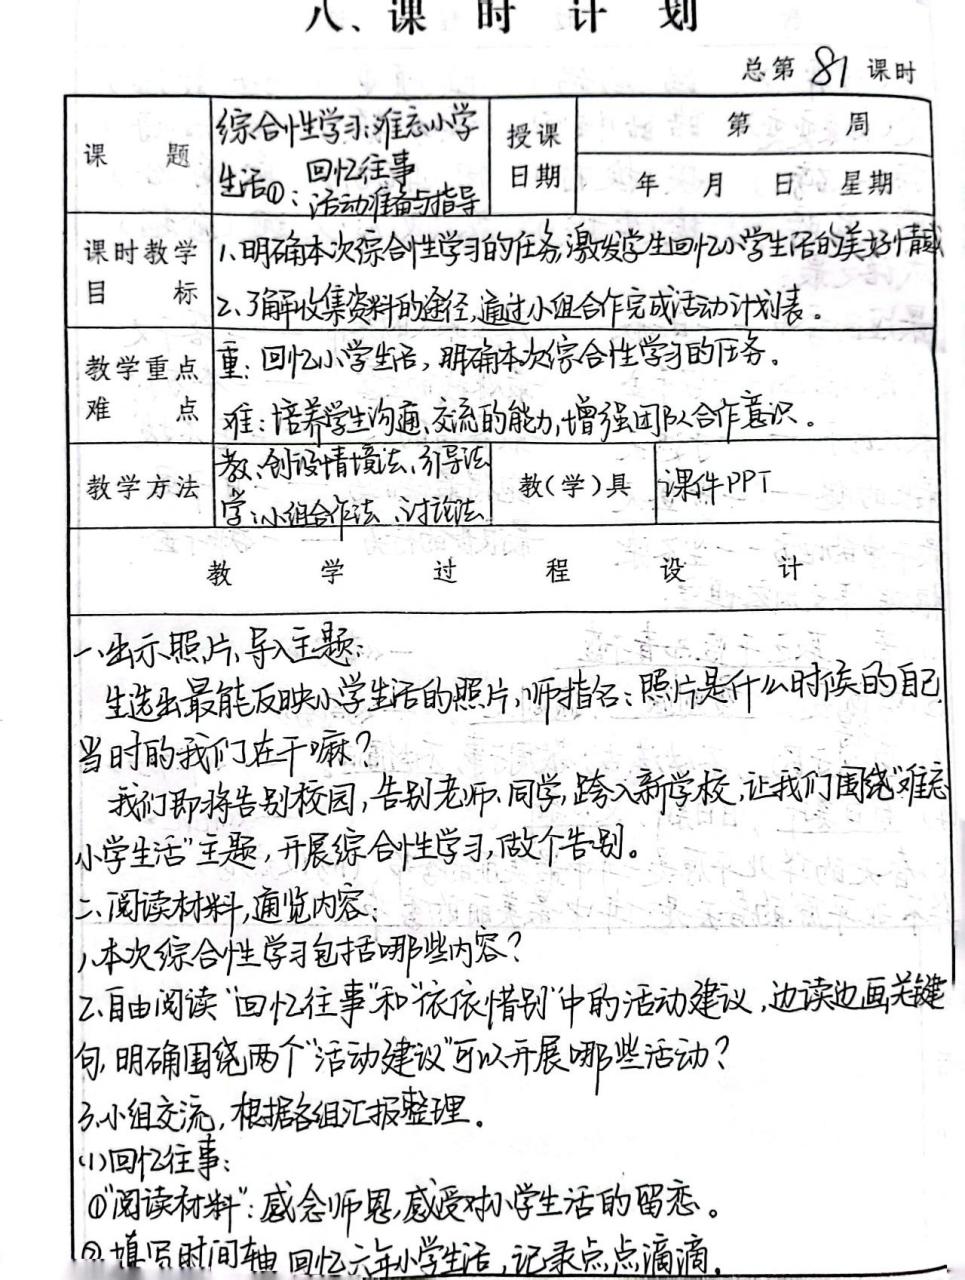 八、课时计划
总第 81 课时
课题 综合性学习:难忘小学生活①:回忆往事 活动准备与指导 授课日期 第 周 年 月 日 星期
课时教学目标 1、明确本次综合性学习的任务,激发学生回忆小学生活的美好情感
2、了解收集资料的途径,通过小组合作完成活动计划表。
教学重点难点 重:回忆小学生活,明确本次综合性学习的任务。
难:培养学生沟通、交流的能力,增强团队合作意识。
教学方法 教:创设情境法、引导法 教(学)具 课件PPT
学:小组合作法、讨论法
教学过程设计
一、出示照片、导入主题:
生选出最能反映小学生活的照片,师指名:照片是什么时候的自己
当时的我们在干嘛?
我们即将告别校园,告别老师、同学,跨入新学校,让我们围绕“难忘
小学生活”主题,开展综合性学习,做个告别。
二、阅读材料,通览内容:
1、本次综合性学习包括哪些内容?
2、自由阅读“回忆往事”和“依依惜别”中的活动建议,边读边画关键
句,明确围绕两个“活动建议”可以开展哪些活动?
3、小组交流,根据各组汇报整理。
(1)回忆往事:
①“阅读材料”:感念师恩,感受对小学生活的留恋。
②填写时间轴 回忆六年小学生活,记录点点滴滴。